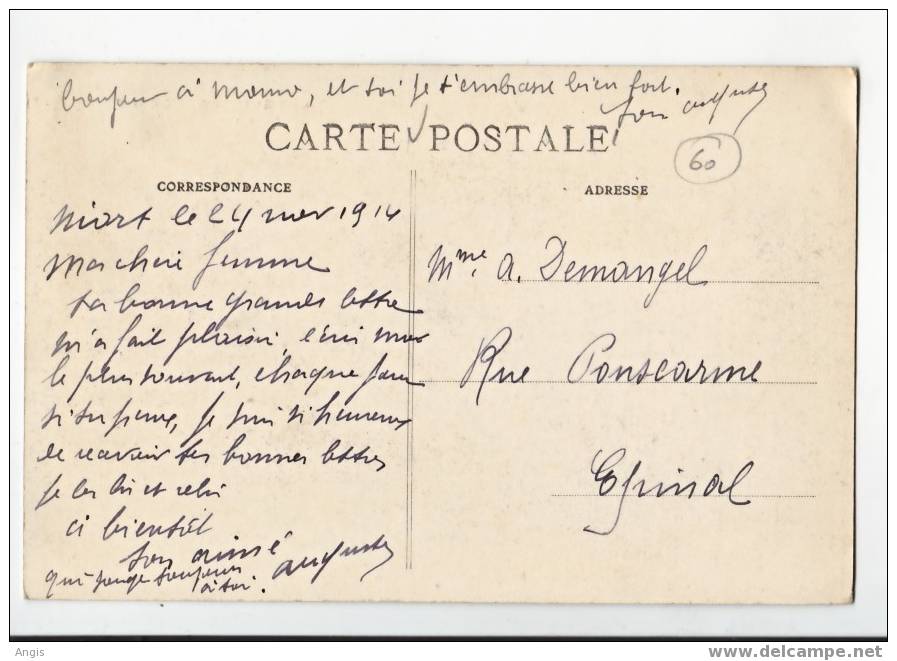 bonjour à Mama, et toi je t'embrasse bien fort.
ton auguste
CARTE POSTALE
60
CORRESPONDANCE
Niort le 24 nov 1914
Ma chère femme
ta bonne grande lettre
m'a fait plaisir, écris moi
le plus souvent, chaque jour
si tu peux, je suis si heureux
de recevoir tes bonnes lettres
je les lis et relis
à bientôt
ton aimé
auguste
qui songe toujours
à toi.
ADRESSE
Mme. A. Demangel
Rue Ponscarme
Epinal
Angis
www.delcampe.net